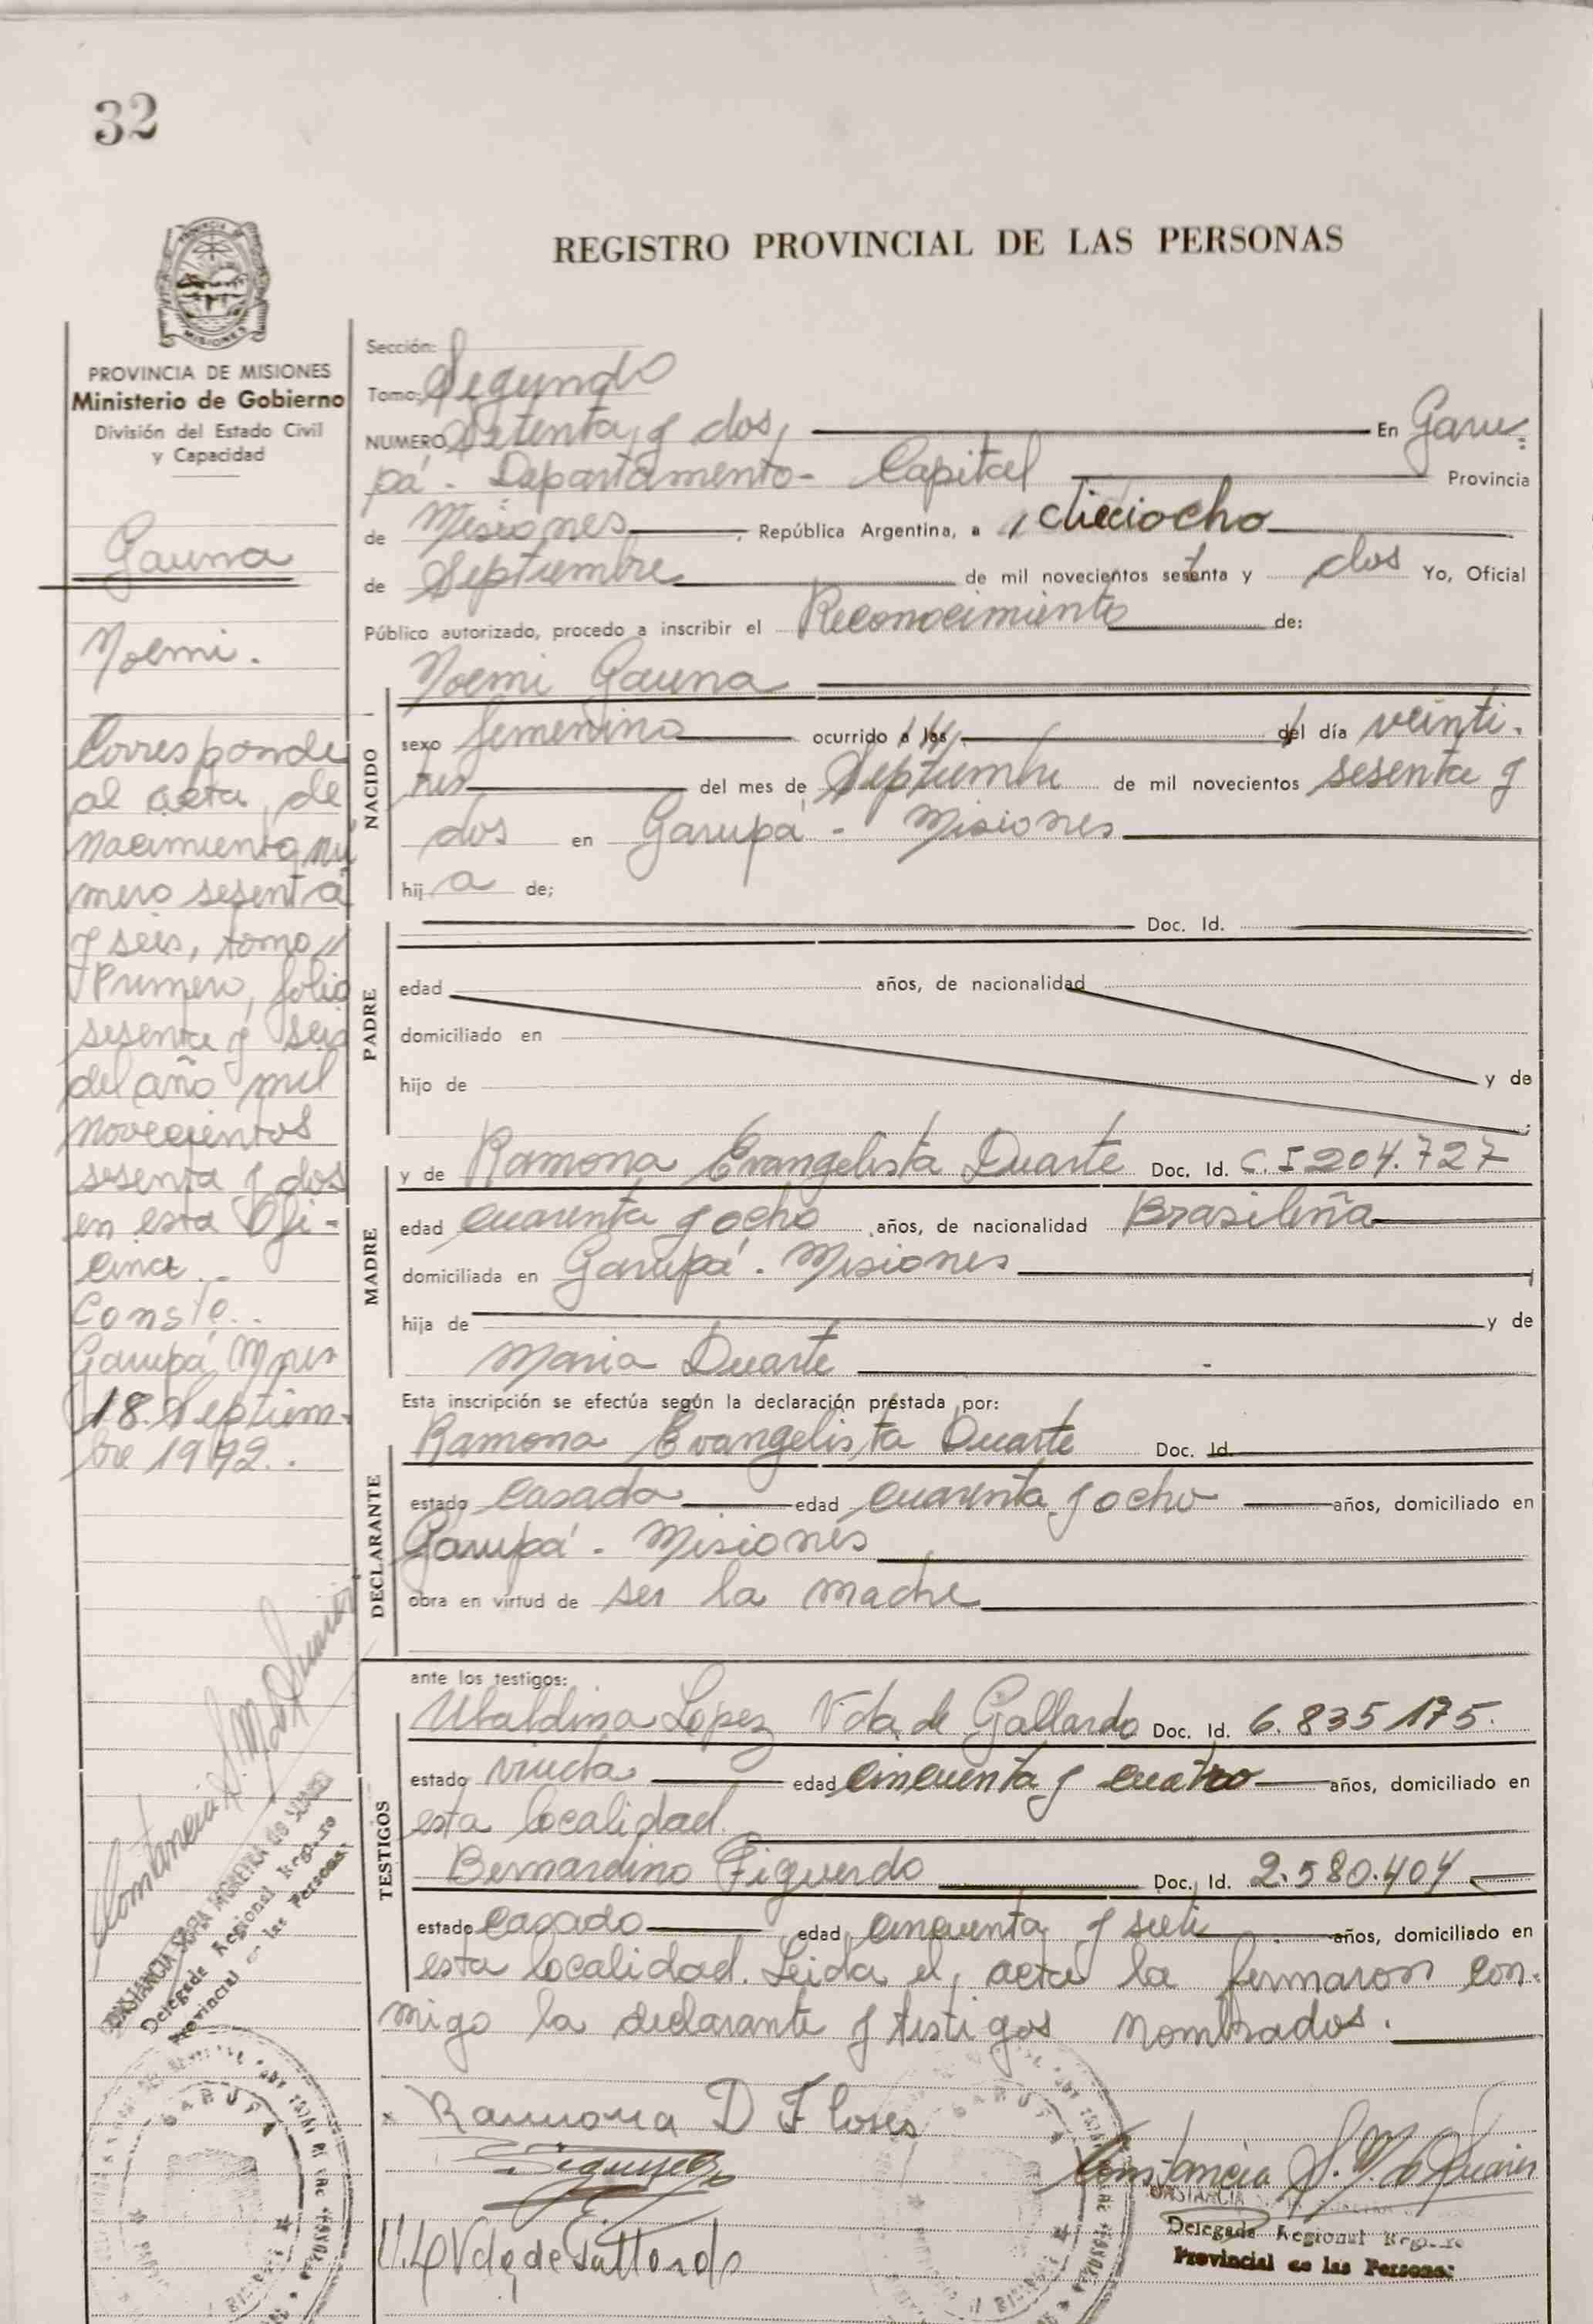 32
REGISTRO PROVINCIAL DE LAS PERSONAS
MISIONES
PROVINCIA DE MISIONES
Ministerio de Gobierno
División del Estado Civil
y Capacidad
Gauna
Noemi.
Corresponde
al acta, de
nacimiento nú
mero sesenta
y seis, tomo //
Primero, folio
sesenta y seis
del año mil
novecientos
sesenta y dos
en esta Ofi-
cina.-
Conste..
Garupá Mnes
18. Septiem-
bre 1972..
Delegada Regional
Provincial las Personas
GARUPA
Sección:
Tomo: Segundo
NUMERO Setenta y dos, En Garu-
pá - Departamento - Capital Provincia
de Misiones, República Argentina, a dieciocho
de Septiembre de mil novecientos setenta y dos Yo, Oficial
Público autorizado, procedo a inscribir el Reconocimiento de:
Noemi Gauna
NACIDO
sexo femenino ocurrido a las del día veinti-
tres del mes de Septiembre de mil novecientos sesenta y
dos en Garupá - Misiones
hij a de;
PADRE
Doc. Id.
edad años, de nacionalidad
domiciliado en
hijo de y de
MADRE
y de Ramona Evangelista Duarte Doc. Id. C.I 204.727
edad cuarenta y ocho años, de nacionalidad Brasileña
domiciliada en Garupá - Misiones
hija de y de
Maria Duarte
Esta inscripción se efectúa según la declaración prestada por:
DECLARANTE
Ramona Evangelista Duarte Doc. Id.
estado casada edad cuarenta y ocho años, domiciliado en
Garupá - Misiones
obra en virtud de ser la madre
TESTIGOS
ante los testigos:
Ubaldina Lopez Vda. de Gallardo Doc. Id. 6.835.175.
estado viuda edad cincuenta y cuatro años, domiciliado en
esta localidad.
Bernardino Figueredo Doc. Id. 2.580.404
estado casado edad cincuenta y siete años, domiciliado en
esta localidad. Leida el acta la firmaron con-
migo la declarante y testigos nombrados.
x Ramona D Flores
Constancia
Vda de Gallardo
GARUPA
Delegada Regional
Provincial de las Personas